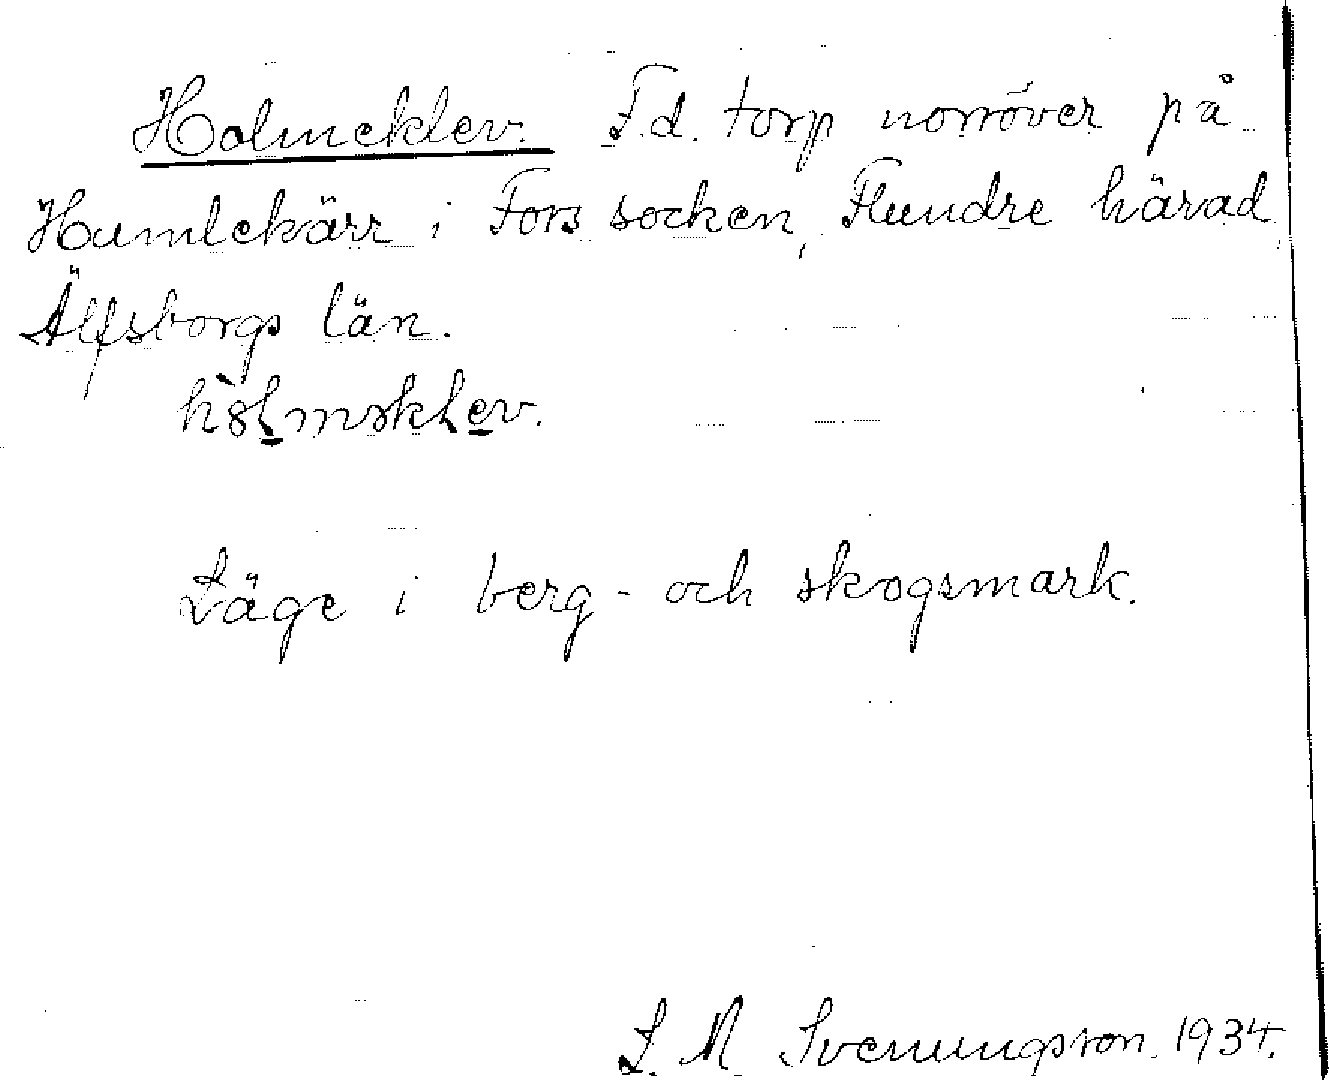 Holmeklev. F.d. torp norröver på
Humlekärr i Fors socken, Flundre härad
Älfsborgs län.
Läge i berg- och skogsmark.
L. M. Svenungsson. 1934.